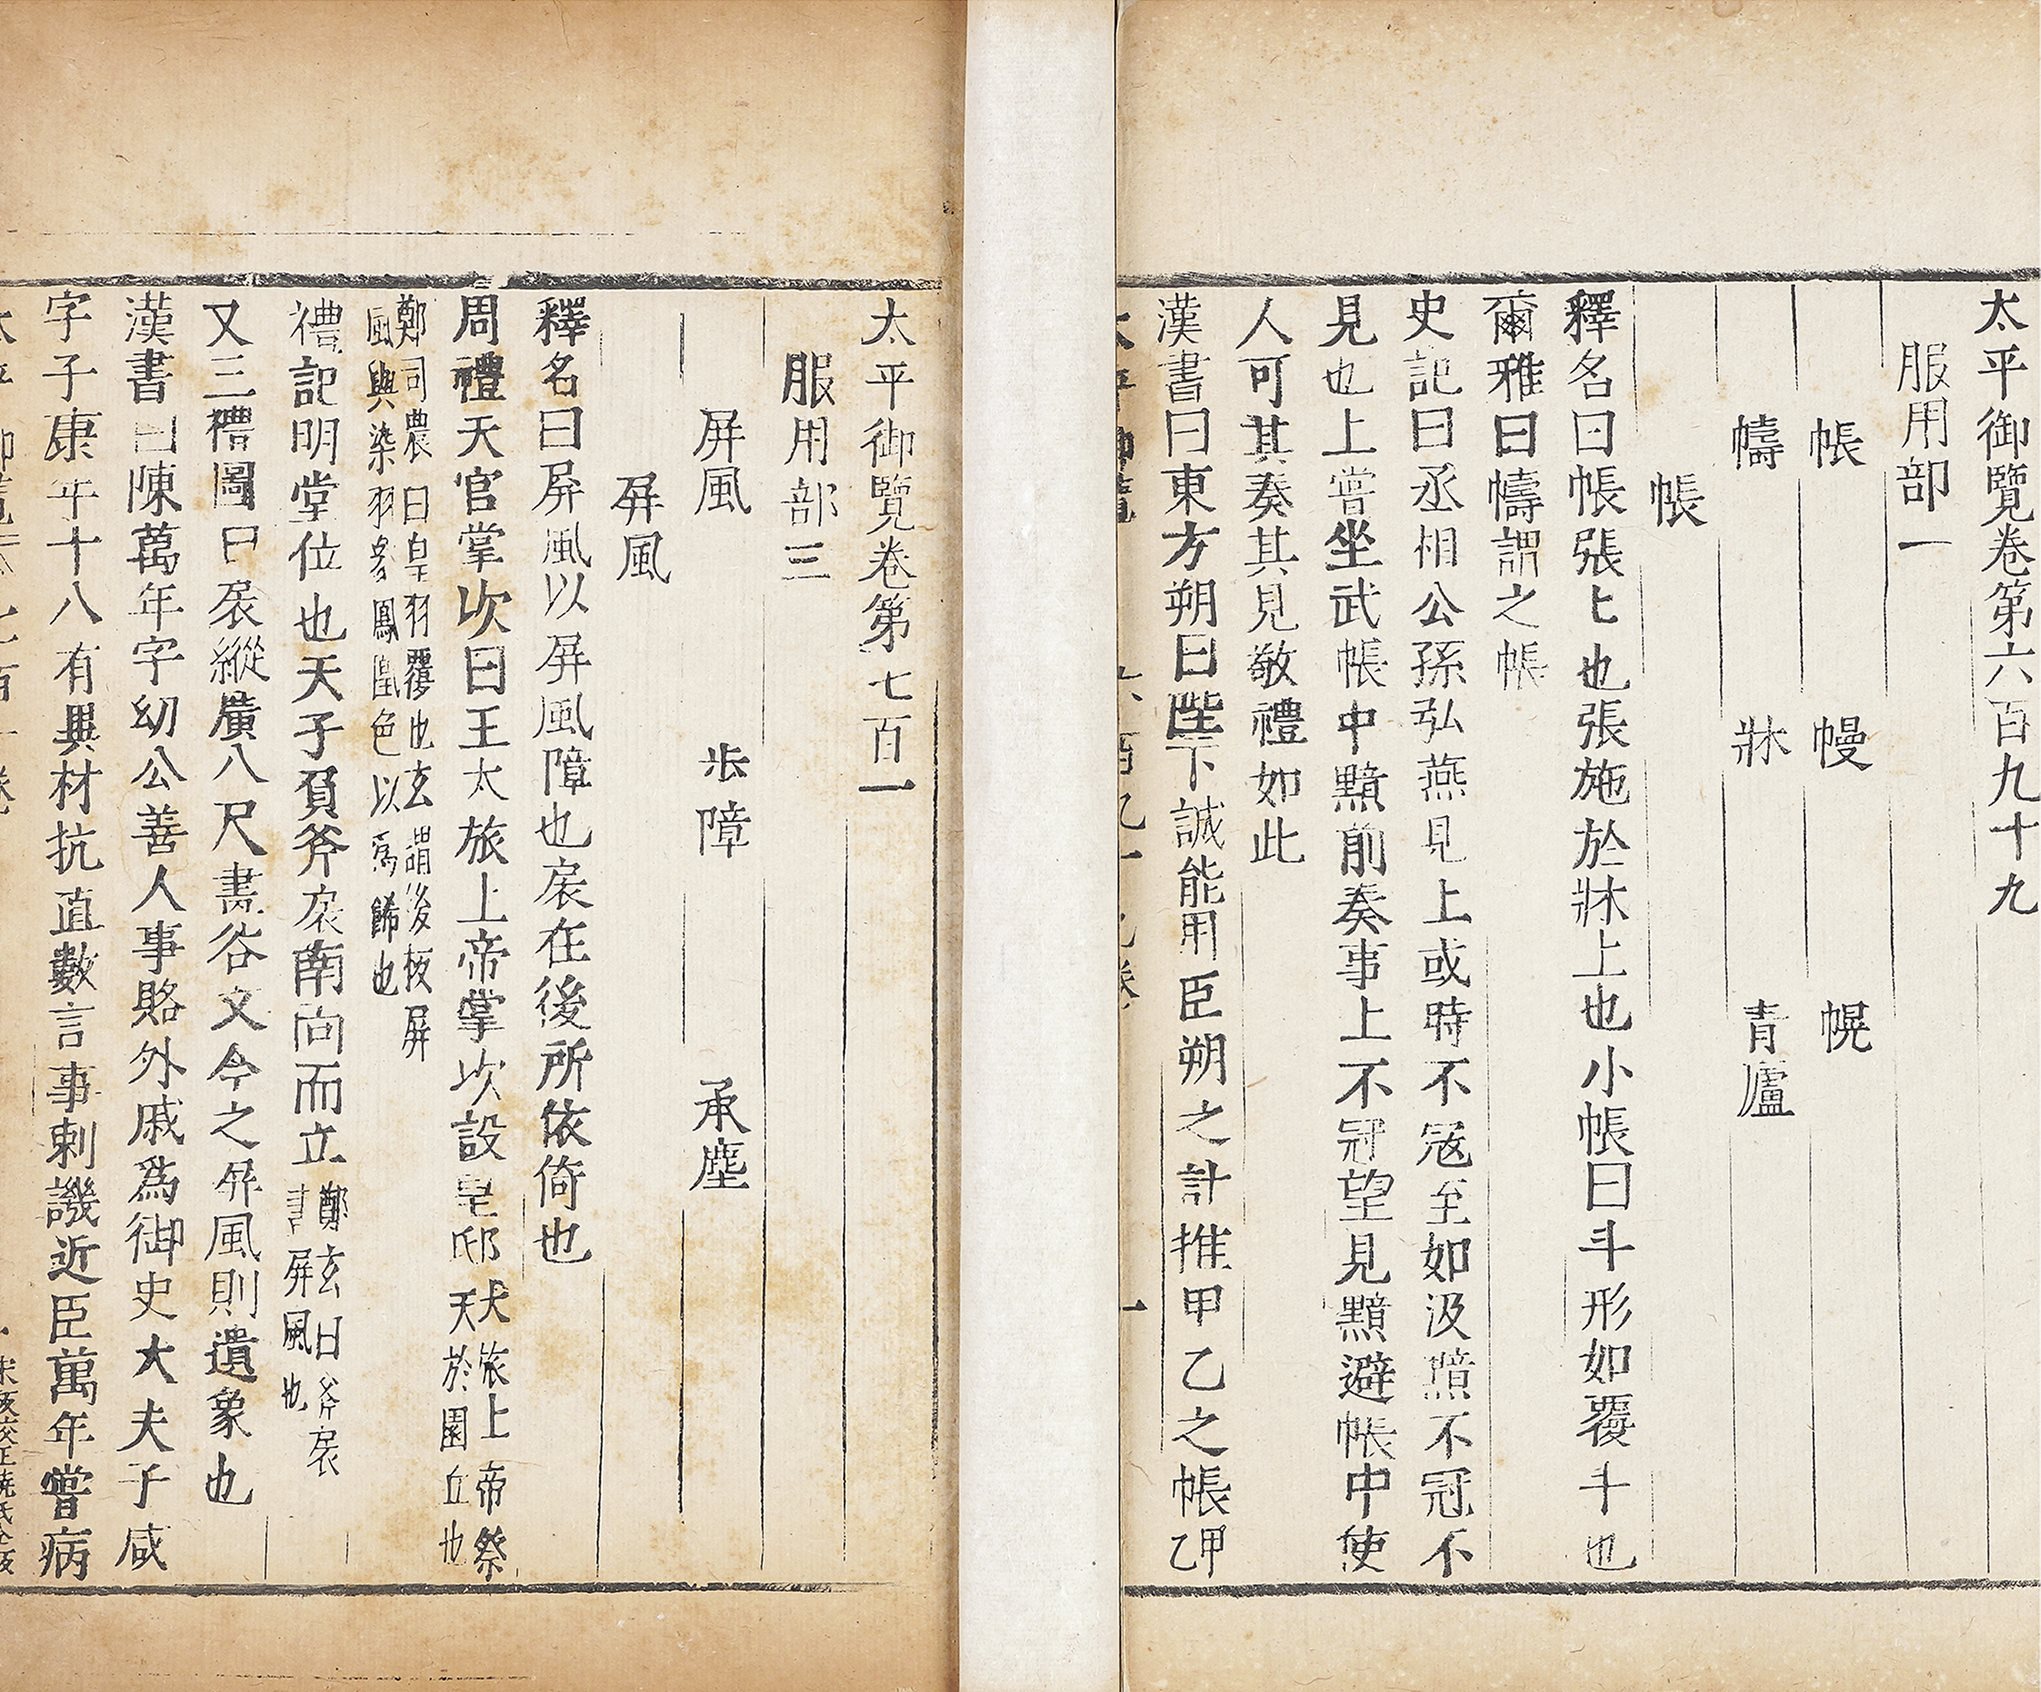 太平御覽卷第六百九十九
服用部一
帳 幔 幌
幬 牀 青廬
帳
釋名曰帳張上也張施於牀上也小帳曰斗形如覆斗也
爾雅曰幬謂之帳
史記曰丞相公孫弘燕見上或時不冠至如汲黯不冠不
見也上嘗坐武帳中黯前奏事上不冠望見黯避帳中使
人可其奏其見敬禮如此
漢書曰東方朔曰陛下誠能用臣朔之計推甲乙之帳甲
乙
太平御覽卷第七百一
服用部三
屏風 步障 承塵
屏風
釋名曰屏風以屏風障也扆在後所依倚也
周禮天官掌次曰王太旅上帝掌次設皇邸大旅上帝祭
天於園丘也
鄭司農曰皇羽覆也玄謂後板屏
風與染羽象鳳凰色以爲飾也
禮記明堂位也天子負斧扆南向而立鄭玄曰斧扆
書屏風也
又三禮圖曰扆縱廣八尺畫斧文今之屏風則遺象也
漢書曰陳萬年字幼公善人事賂外戚爲御史大夫子咸
字子康年十八有異材抗直數言事刺譏近臣萬年嘗病